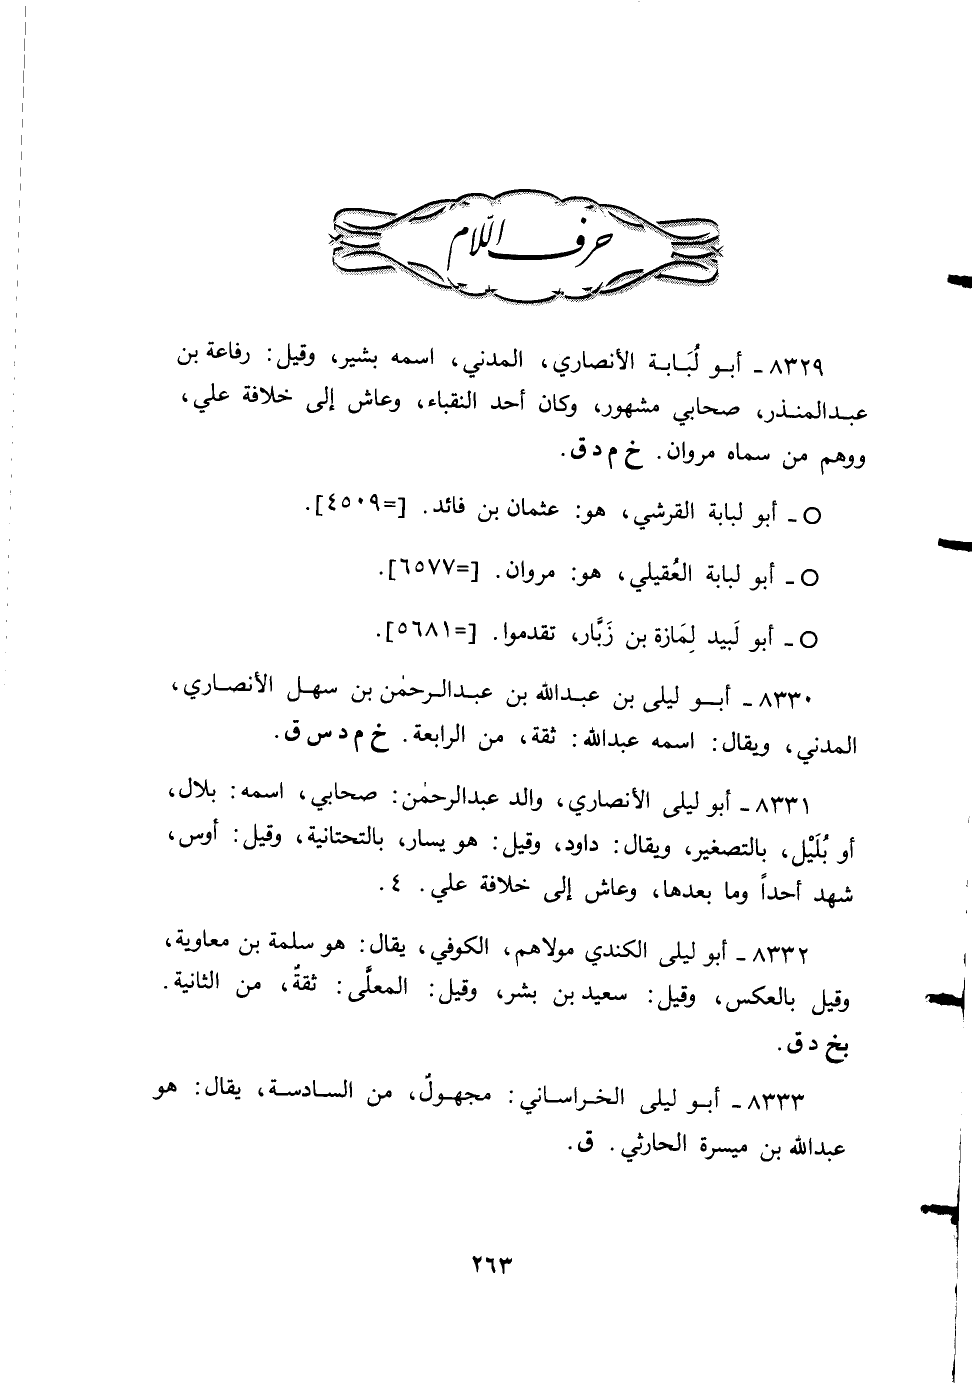 حرف اللّام
٨٣٢٩ ـ أبو لُبَابة الأنصاري، المدني، اسمه بشير، وقيل: رفاعة بن
عبدالمنذر، صحابي مشهور، وكان أحد النقباء، وعاش إلى خلافة علي،
ووهم من سماه مروان. خ م د ق.
○ ـ أبو لبابة القرشي، هو: عثمان بن فائد. [=٤٥٠٩].
○ ـ أبو لبابة العُقيلي، هو: مروان. [=٦٥٧٧].
○ ـ أبو لَبيد لِمَازة بن زَبَّار، تقدموا. [=٥٦٨١].
٨٣٣٠ ـ أبو ليلى بن عبدالله بن عبدالرحمٰن بن سهل الأنصاري،
المدني، ويقال: اسمه عبدالله: ثقة، من الرابعة. خ م د س ق.
٨٣٣١ ـ أبو ليلى الأنصاري، والد عبدالرحمٰن: صحابي، اسمه: بلال،
أو بُلَيْل، بالتصغير، ويقال: داود، وقيل: هو يسار، بالتحتانية، وقيل: أوس،
شهد أحداً وما بعدها، وعاش إلى خلافة علي. ٤.
٨٣٣٢ ـ أبو ليلى الكندي مولاهم، الكوفي، يقال: هو سلمة بن معاوية،
وقيل بالعكس، وقيل: سعيد بن بشر، وقيل: المعلَّى: ثقةٌ، من الثانية.
بخ د ق.
٨٣٣٣ ـ أبو ليلى الخراساني: مجهولٌ، من السادسة، يقال: هو
عبدالله بن ميسرة الحارثي. ق.
٢٦٣